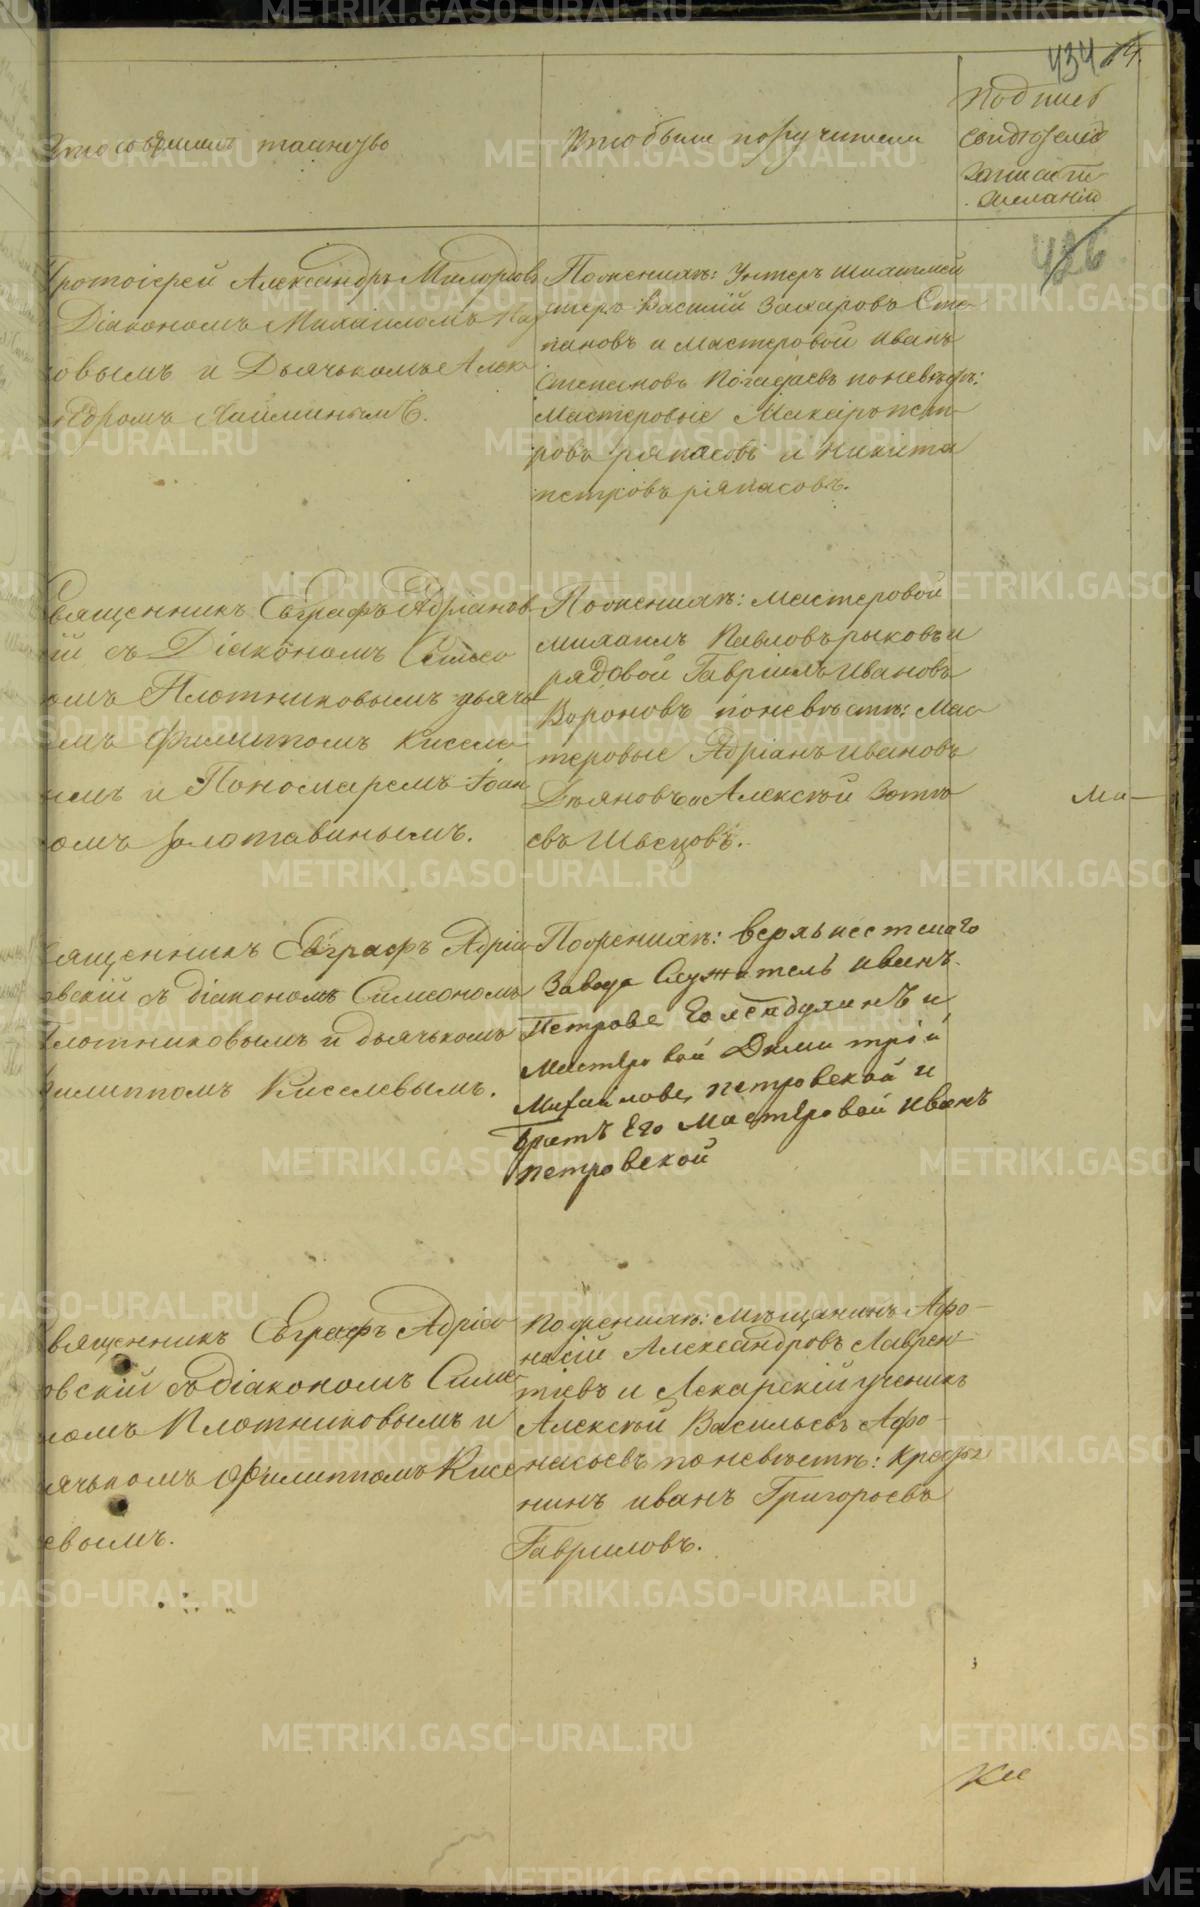 434
Кто совершалъ таинство
Кто были поручители
Подпись
свидѣтелей
записи по
желанію
426
Протоіерей Александръ
Діакономъ Михаиломъ
овымъ и Дьячькомъ Алек
ндромъ
По женихѣ: Унтеръ Шихтмей
стеръ Василій Захаровъ Сте-
пановъ и мастеровой иванъ
Степановъ поневѣстѣ:
Мастеровые Макаръ пет-
ровъ ряпасовъ и никита
петровъ ряпасовъ.
вященникъ Евграфъ Адріанов
ій съ Діакономъ Симео
омъ Плотниковымъ дьячь
омъ Филиппомъ Киселе
ымъ и Пономаремъ Іоан
омъ Золотавинымъ.
По женихѣ: мастеровой
михаилъ Павловъ рыковъ и
рядовой Гавріилъ Ивановъ
Вороновъ поневѣстѣ: Мас
теровые Адріанъ ивановъ
Деяновъ и Алексѣй Зоте
евъ Швецовъ.
Ма-
вященникъ Евграфъ Адріа
овскій съ діакономъ Симеономъ
лотниковымъ и дьячькомъ
илиппомъ Киселевымъ.
По женихѣ: верхъисетскаго
Завода Служитель иванъ
Петровъ и
Мастеровой Дими трій
Михаиловъ петровской и
братъ Его Мастеровой иванъ
петровской
вященникъ Евграфъ Адріа
овскій съ діакономъ Симе
номъ Плотниковымъ и
ячькомъ Филиппомъ Кисе
евымъ.
По женихѣ: мѣщанинъ Афо-
насій Александровъ Лаврен-
тіевъ и Лекарскій ученикъ
Алексѣй Васильевъ Афо-
насьевъ поневѣстѣ: кресть
нинъ иванъ Григорьевъ
Гавриловъ.